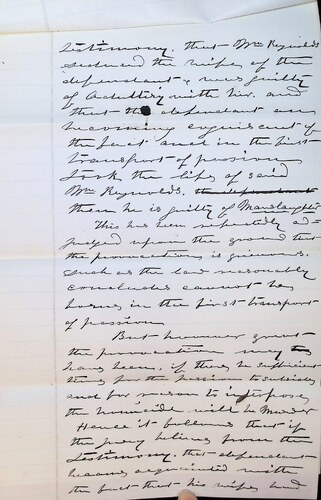 testimony, that Wm Reynolds
seduced the wife of the
defendant & was guilty
of Adultery with her. and
that the defendant on
becoming cognizant of
the fact and in the first
transport of passion
took the life of said
Wm Reynolds,
then he is guilty of Manslaughter
This has been repeatedly ad-
judged upon the ground that
the provocation is grievous.
such as the law reasonably
concludes cannot be
borne in the first transport
of passion
But however great
the provocation may
have been, if there be sufficient
time for the passion to subside
and for reason to interpose
the homicide will be Murder
Hence it follows that if
the jury believe from the
testimony, that defendant
became acquainted with
the fact that his wife had